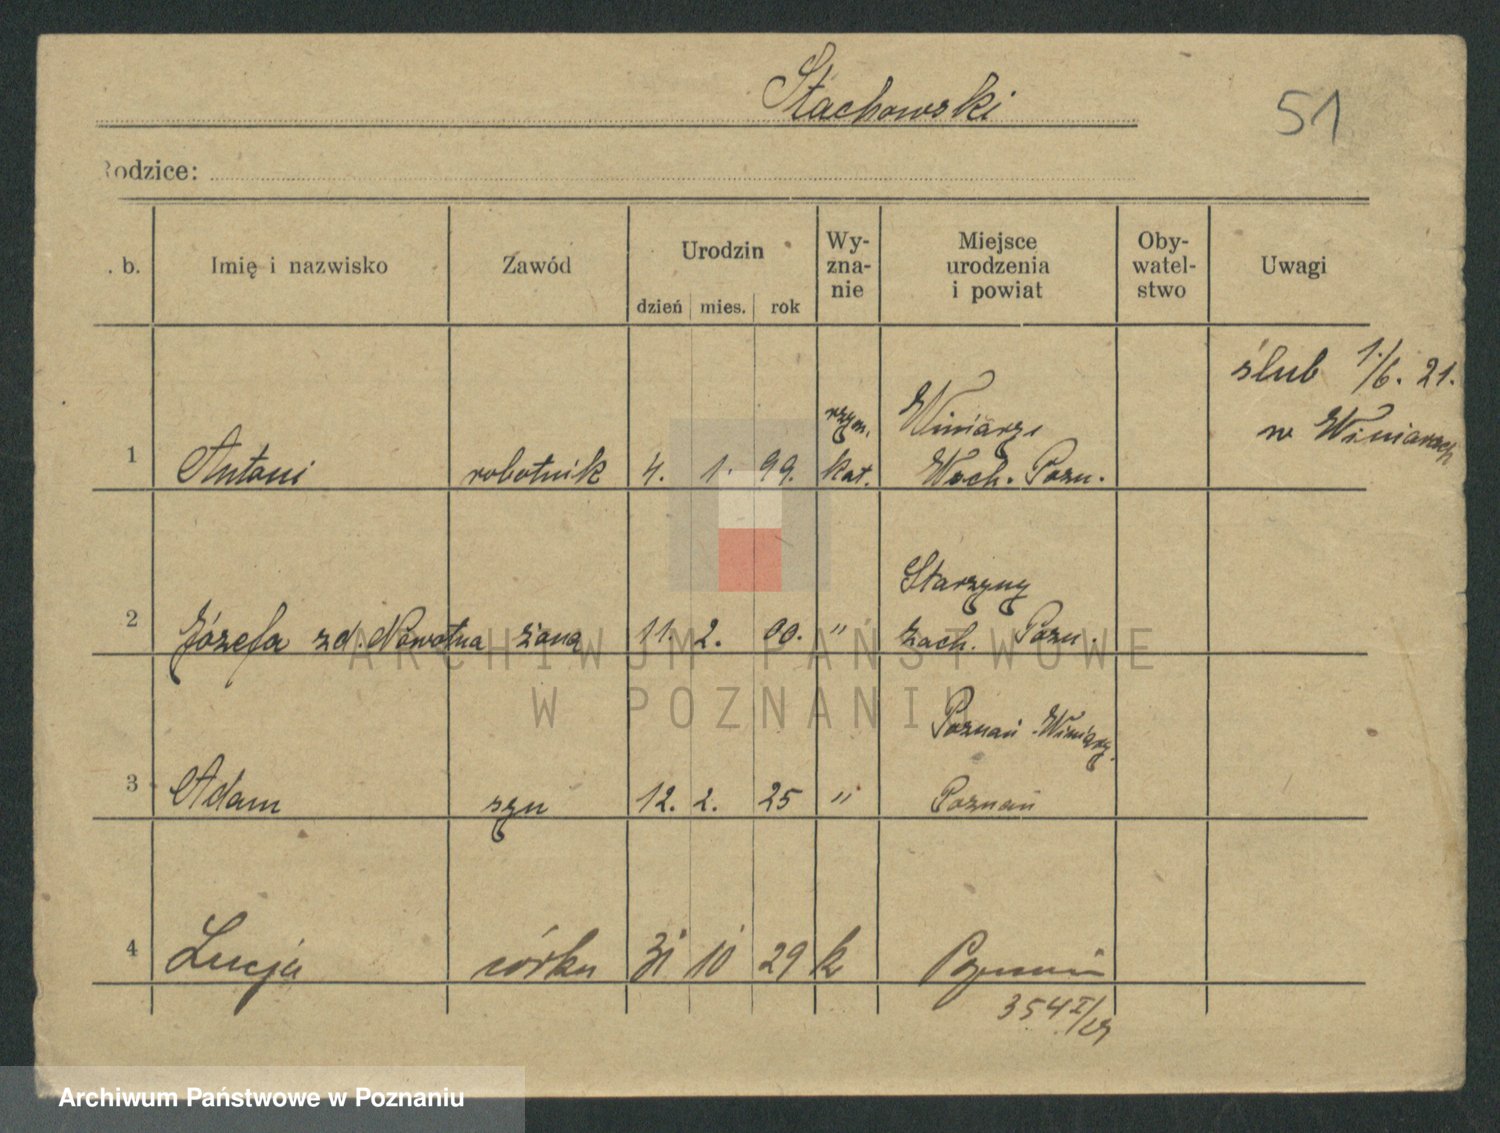 Stachowski
51
Rodzice:
. b. Imię i nazwisko Zawód Urodzin dzień mies. rok Wy-zna-nie Miejsce urodzenia i powiat Oby-watel-stwo Uwagi
ślub 1./6. 21.
w Winiarach
rzym. Winiary
1 Antoni robotnik 4. 1. 99. kat. Wsch. Pozn.
Starzyny
2 Józefa zd. Nowotna żona 11. 2. 00. " zach. Pozn.
Poznań-Winiary.
3 Adam syn 12. 2. 25 " Poznań
4 Lucja córka 31 10 29 k Poznań
354 I/29
ARCHIWUM PAŃSTWOWE
W POZNANIU
Archiwum Państwowe w Poznaniu